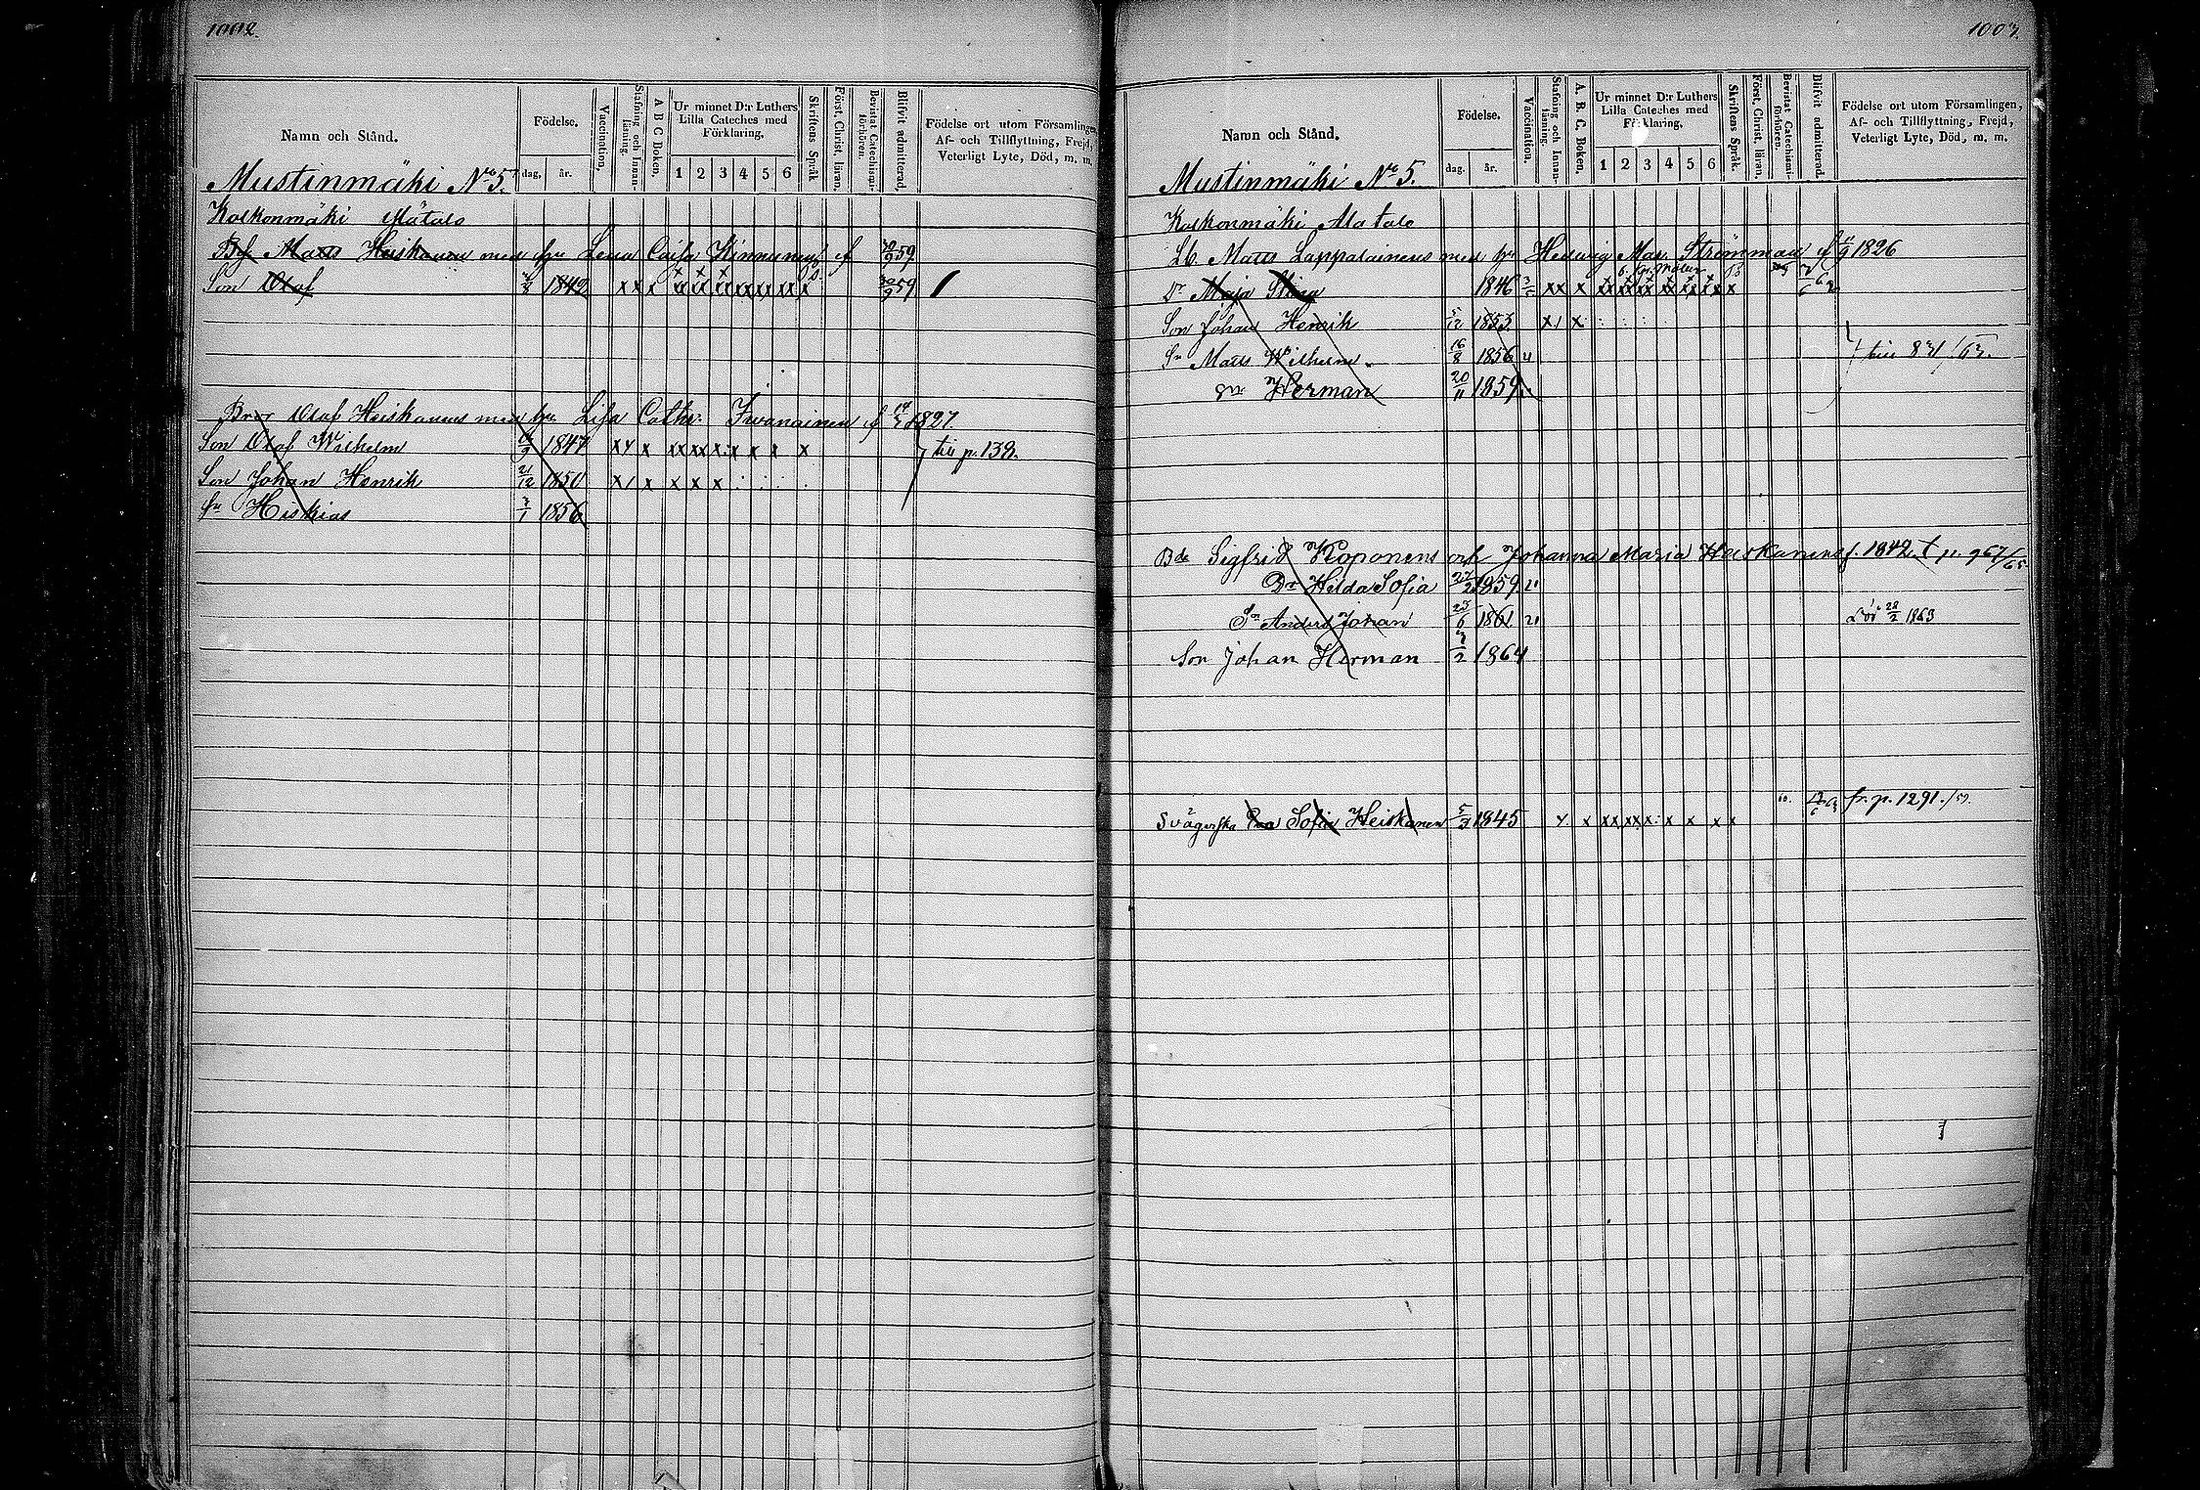 1002.
Namn och Stånd.
Födelse.
dag. år.
Vaccination.
Stafning och Innanläsning.
A B C Boken.
Ur minnet D:r Luthers Lilla Cateches med Förklaring.
1 2 3 4 5 6
Skriftens Språk
Först. Christ. läran.
Bevistat Catechismiförhören.
Blifvit admitterad.
Födelse ort utom Församlingen, Af- och Tillflyttning, Frejd, Veterligt Lyte, Död, m. m.
Mustinmäki No 5.
Kolkonmäki
Matts Heiskanen med hu Lena Caisa Kinnunens 59
Son Olof 1842 x x x 59
Olof Heiskanens med hu Lisa Cathr. Iwanainen 1827.
Son Olof Wilhelm 1847 x x x xx xx x x x x x till p. 139.
Son Johan Henrik 21/12 1850 x / x x x x
Hiskias 1856
1003.
Namn och Stånd.
Födelse.
dag. år.
Vaccination.
Stafning och Innanläsning.
A. B. C. Boken.
Ur minnet D:r Luthers Lilla Cateches med Förklaring.
1 2 3 4 5 6
Skriftens Språk.
Först. Christ. läran.
Bevistat Catechismiförhören.
Blifvit admitterad.
Födelse ort utom Församlingen, Af- och Tillflyttning, Frejd, Veterligt Lyte, Död, m. m.
Mustinmäki No 5.
Kolkonmäki Ala talo
Lb. Matts Lappalainens med hu Hedwig Mar. Strömman 1826
Dr Maja Stina 1846 xx x
Son Johan Henrik 5/12 1853. x / x
Sn Matts Wilhelm 16/8 1856 till 831/63.
Sn Herman 20/11 1859.
Bde Sigfrid Koponens och Johanna Maria Heiskanens f. 1842. p. 967/65
Dr Hilda Sofia 1859.
Sn Anders Johan 1861 Död 28/2 1863
Son Johan Herman 1864
Svägerska Sofia Heiskanen 5/3 1845 x x xx xx x x x x x fr. p. 1291./59.